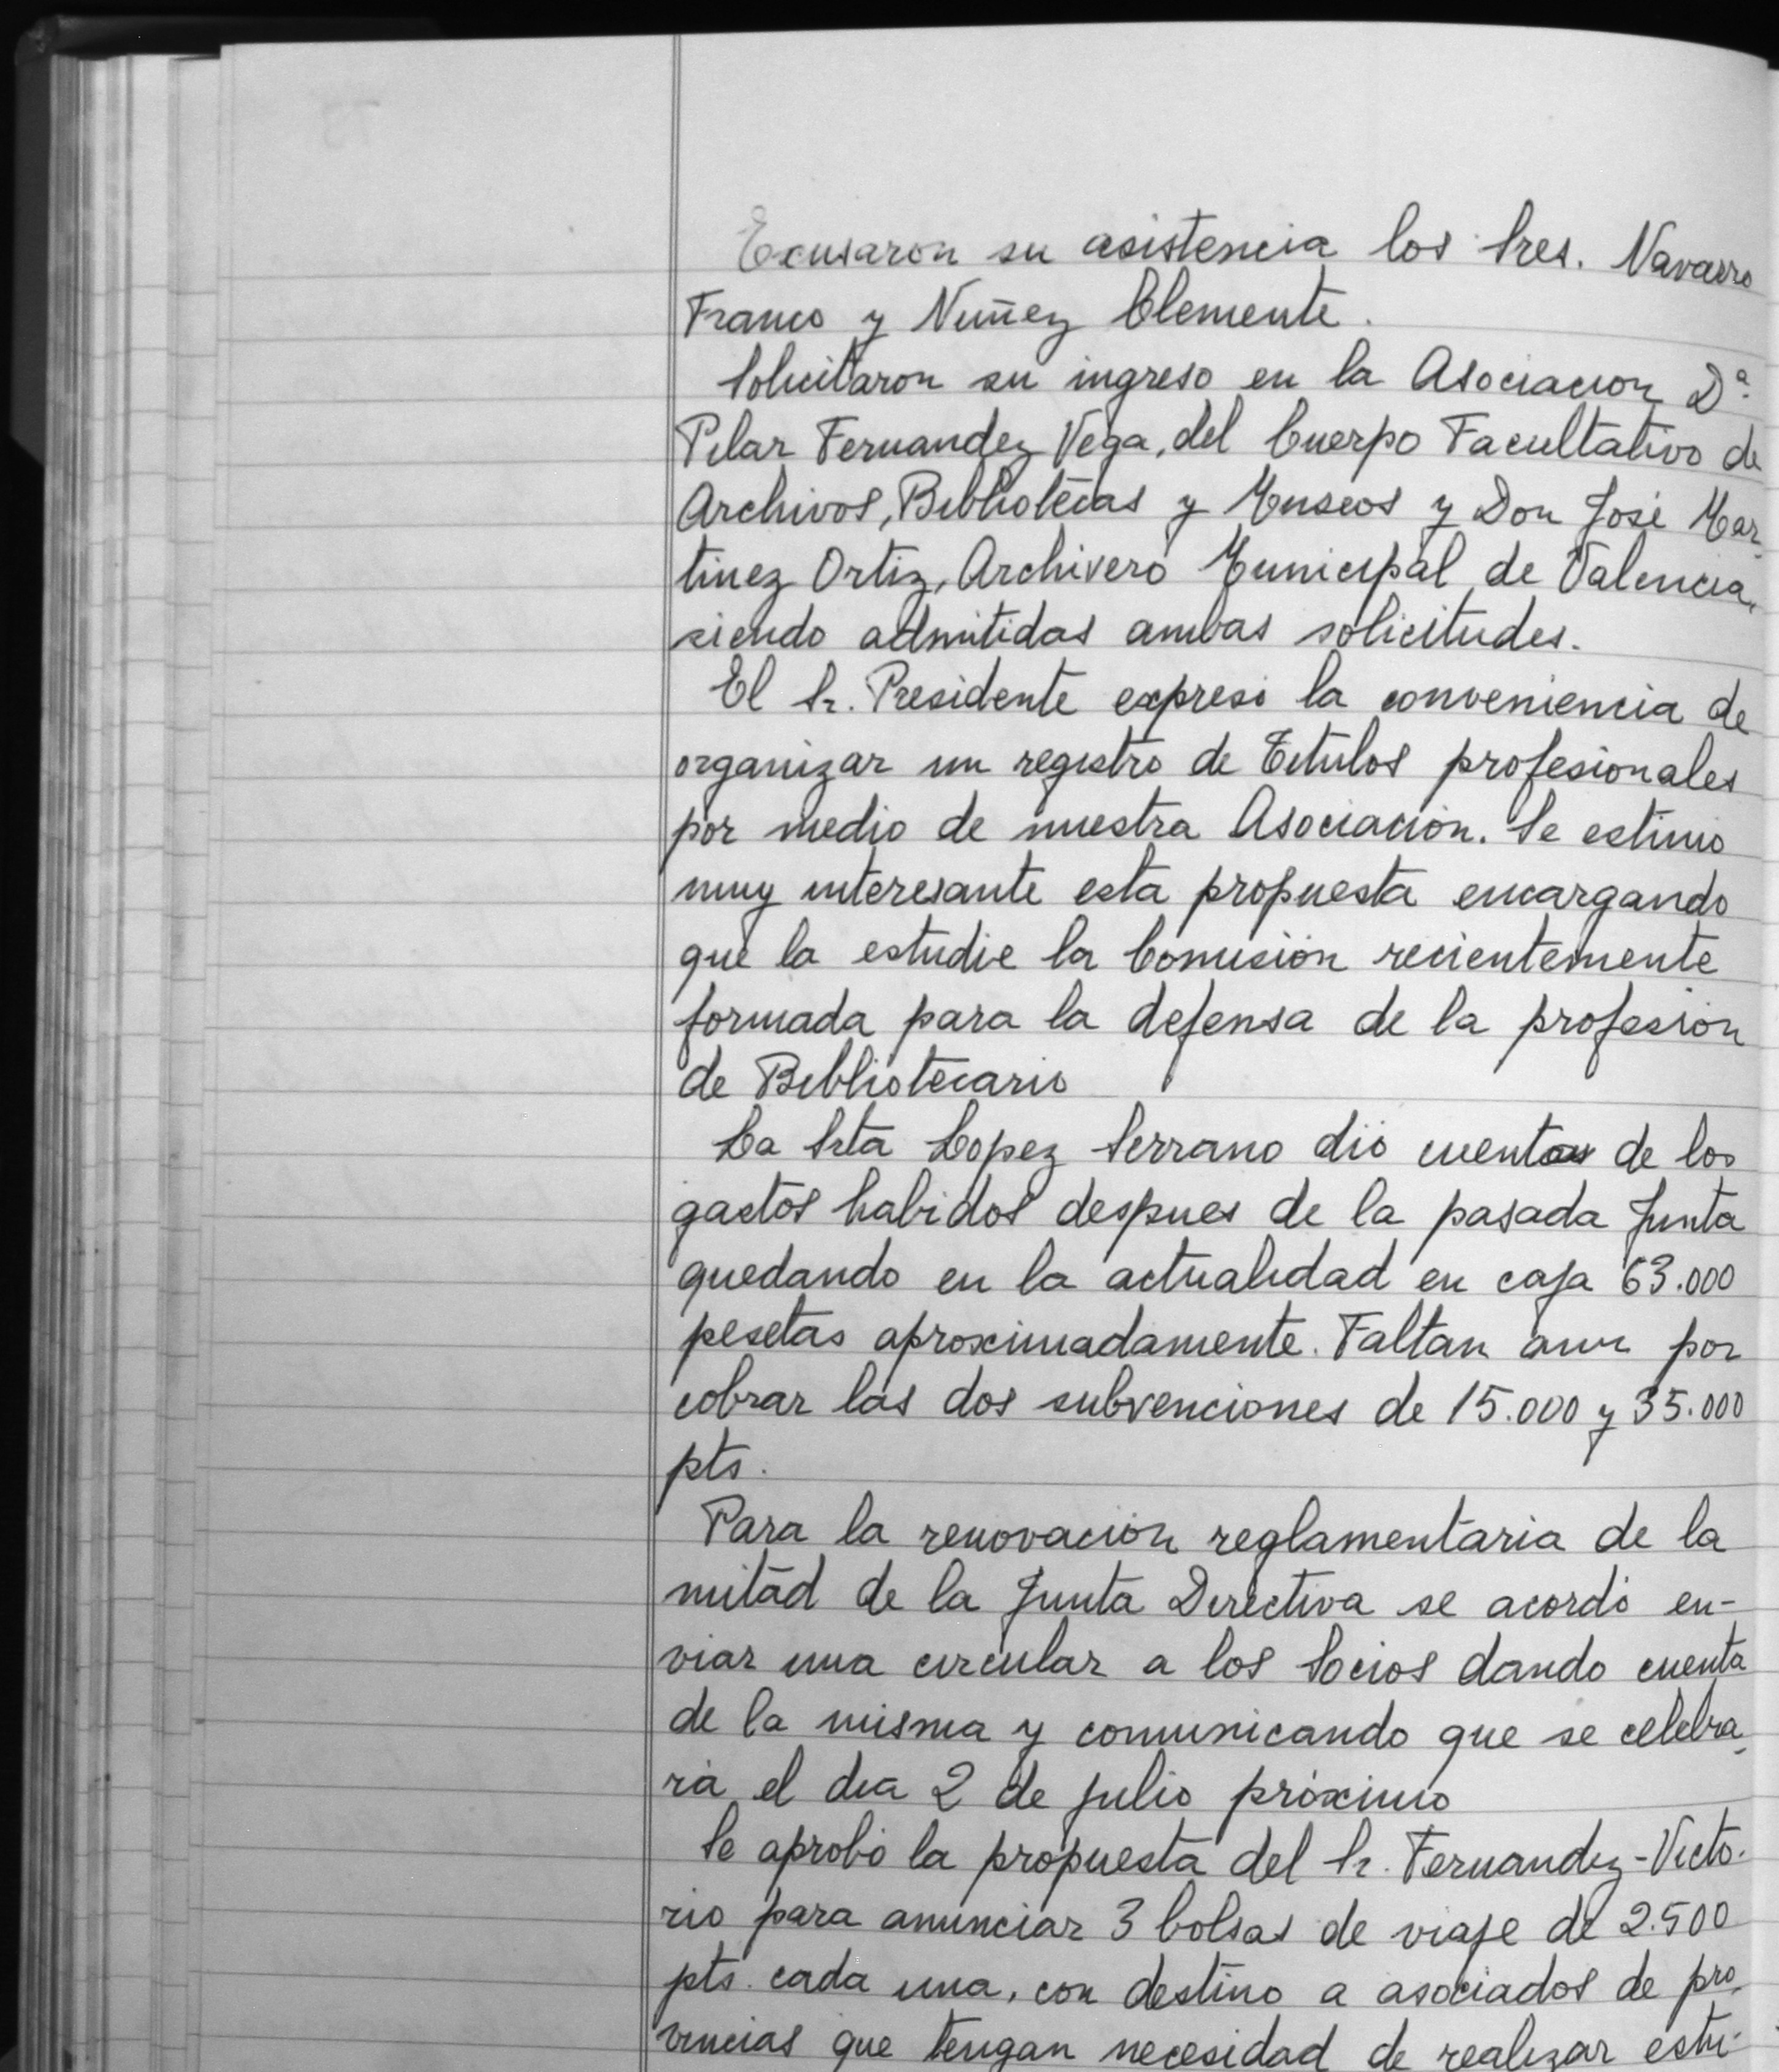 Excusaron su asistencia los Sres. Navarro
Franco y Nuñez Clemente.
Solicitaron su ingreso en la Asociacion Dª
Pilar Fernandez Vega, del Cuerpo Facultativo de
Archivos, Bibliotecas y Museos y Don José Mar-
tinez Ortiz, Archivero Municipal de Valencia,
siendo admitidas ambas solicitudes.
El Sr. Presidente expresó la conveniencia de
organizar un registro de Titulos profesionales
por medio de nuestra Asociación. Se estimó
muy interesante esta propuesta encargando
que la estudie la Comisión recientemente
formada para la defensa de la profesión
de Bibliotecario
La Srta Lopez Serrano dió cuenta de los
gastos habidos despues de la pasada Junta
quedando en la actualidad en caja 63.000
pesetas aproximadamente. Faltan aun por
cobrar las dos subvenciones de 15.000 y 35.000
pts.
Para la renovación reglamentaria de la
mitad de la Junta Directiva se acordó en-
viar una circular a los Socios dando cuenta
de la misma y comunicando que se celebra-
rá el dia 2 de julio próximo
Se aprobó la propuesta del Sr. Fernandez-Victo-
rio para anunciar 3 bolsas de viaje de 2.500
pts. cada una, con destino a asociados de pro-
vincias que tengan necesidad de realizar estu-